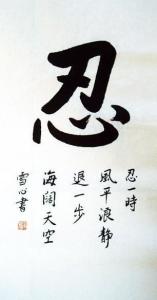 忍
忍一時
風平浪靜
退一步
海闊天空
雪心書